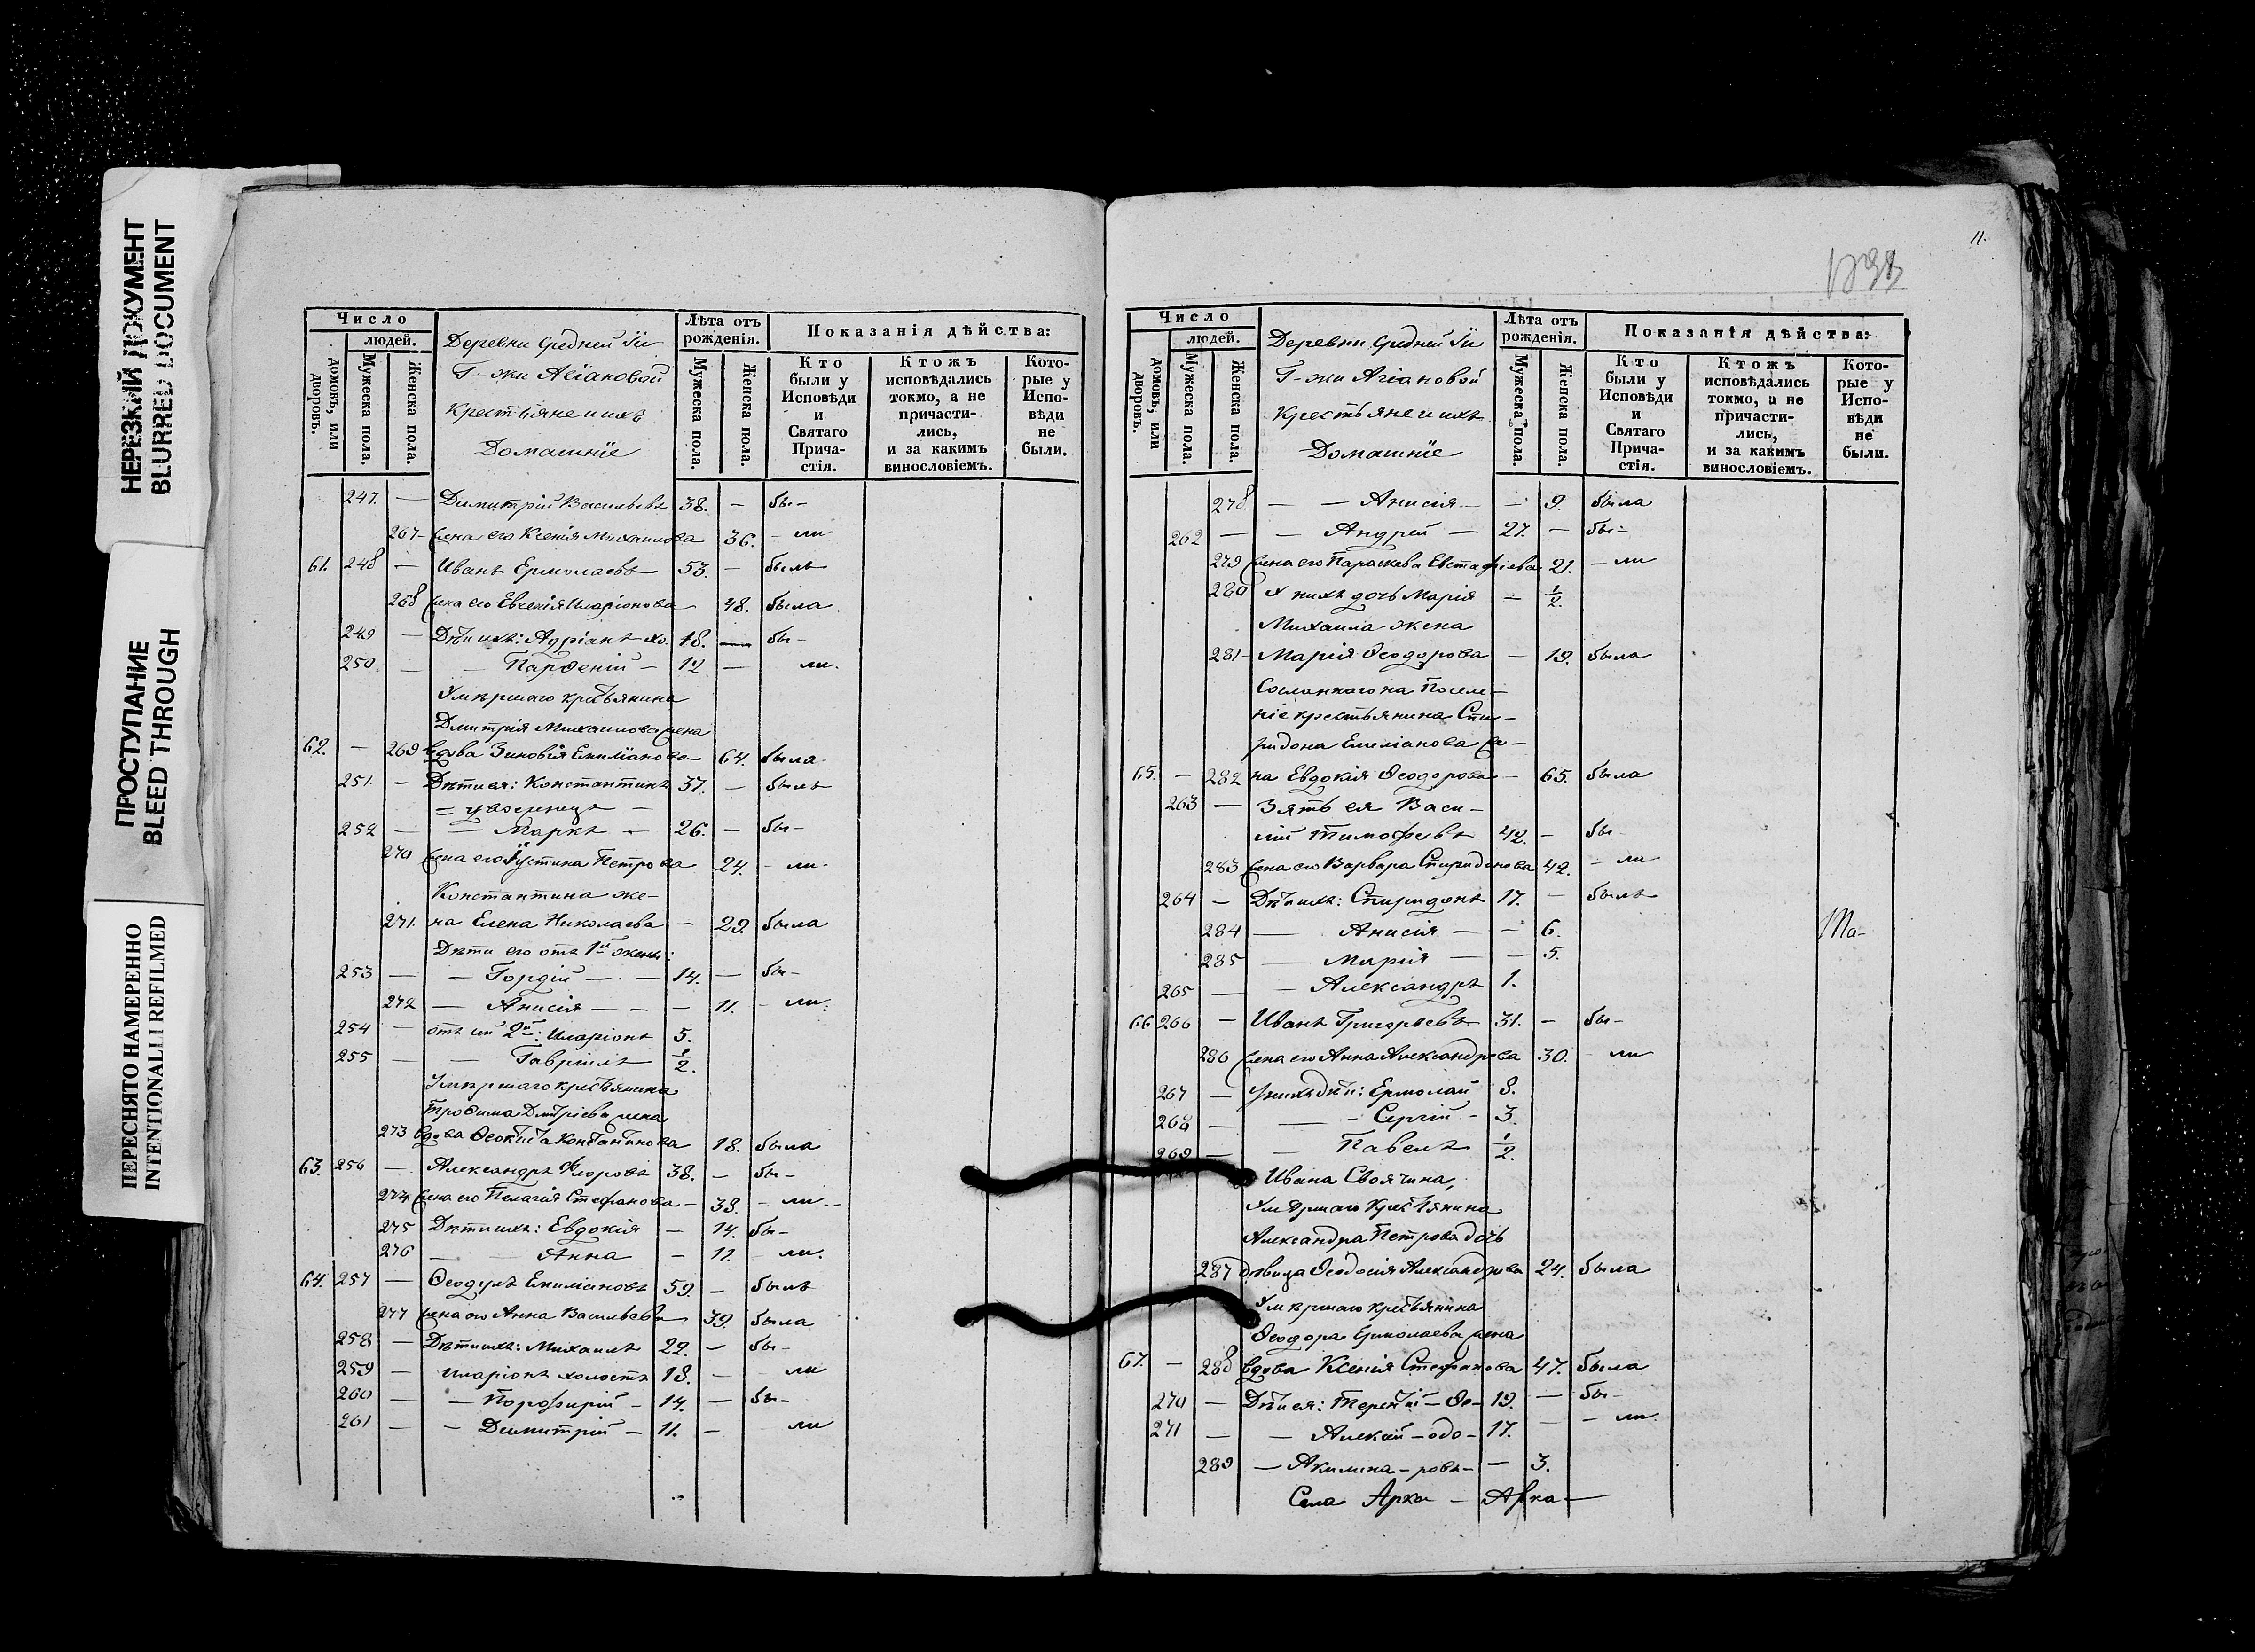 НЕРЕЗКИЙ ДОКУМЕНТ
BLURRED DOCUMENT
ПРОСТУПАНИЕ
BLEED THROUGH
ПЕРЕСНЯТО НАМЕРЕННО
INTENTIONALLI REFILMED
Число
людей.
домовъ, или дворовъ.
Мужеска пола.
Женска пола.
Деревни Средней
Г-жи Агіановой
Крестьяне и ихъ
Домашніе
Лѣта отъ рожденія.
Мужеска пола.
Женска пола.
Показанія дѣйства:
Кто
были у
Исповѣди
и
Святаго
Прича-
стія.
Ктожъ
исповѣдались
токмо, а не
причасти-
лись,
и за какимъ
винословіемъ.
Кото-
рые у
Испо-
вѣди
не
были.
247. — Димитрій Васильевъ 38. — бы-
267 - жена его Ксенія Михаилова 36. - ли
61. 248 — Иванъ Ермолаевъ 53. — былъ
268 жена его Евгенія Иларіонова 48. была
249 — Дѣти ихъ: Адріанъ хо. 18. — бы-
250. — — Парѳеній — 12 — ли.
Умершаго крестьянина
Дмитрія Михаилова жена
62. — 269 вдова Зиновія Емиліанова 64. была
251. — Дѣти ея: Константинъ 37. — былъ
252 — — Маркъ — 26. — бы-
270 жена его Іустина Петрова 24. - ли
Константина же-
271. на Елена Николаева — 29. была
Дѣти его отъ 1й жены:
253 — — Гордій — — 14. — бы-
272 — Анисія — — — 11. - ли.
254 — отъ сей 2й: Иларіонъ 5.
255 — — Гавріилъ 1/2.
Умершаго крестьянина
Трофима Дмитріева жена
273 вдова Ѳеоктиста Константинова 18. была
63. 256 — Александръ Флоровъ 38. — бы-
274 жена его Пелагія Стефанова — 38. - ли
275 Дѣти ихъ: Евдокія — 14. бы-
276 — — Анна — 11. ли.
64. 257 — Ѳеодулъ Емиліановъ 59. — былъ
277 жена его Анна Васильева 39. была
258 — Дѣти ихъ: Михаилъ 22. — бы-
259 — Иларіонъ холостъ 18. — ли
260 — — Порфирій — 14. — бы-
261 — — Димитрій — 11. — ли
11.
Число
людей.
домовъ, или дворовъ.
Мужеска пола.
Женска пола.
Деревни Средней
Г-жи Агіановой
Крестьяне и ихъ
Домашніе
Лѣта отъ рожденія.
Мужеска пола.
Женска пола.
Показанія дѣйства:
Кто
были у
Исповѣди
и
Святаго
Прича-
стія.
Ктожъ
исповѣдались
токмо, а не
причасти-
лись,
и за какимъ
винословіемъ.
Кото-
рые у
Испо-
вѣди
не
были.
278. — — Анисія — — 9. была
262 — — Андрей — 27. — бы-
279 жена его Параскева Евстафіева 21. - ли
280 У нихъ дочь Марія — 1/2.
Михаила жена
281 - Марія Ѳеодорова — 19. была
Сосланнаго на Поселе-
ніе крестьянина Спи-
ридона Емиліанова же-
65. — 282 на Евдокія Ѳеодорова — 65. была
263 — Зять ея Васи-
лій Тимофеевъ 42. — бы-
283 жена его Варвара Спиридонова 42. - ли
264 — Дѣти ихъ: Спиридонъ 17. — былъ
284 — Анисія — — 6. Ма-
285 — Марія — — 5.
265 — — Александръ 1.
66 266 — Иванъ Григорьевъ 31. — бы-
286 жена его Анна Александрова 30. - ли
267 — У нихъ дѣти: Ермолай 8.
268 — — Сергій — 3.
269 — — Павелъ 1/2.
Ивана Своячина,
Умершаго крестьянина
Александра Петрова дочь
287 дѣвица Ѳеодосія Александрова 24. была
Умершаго крестьянина
Ѳеодора Ермолаева жена
67. — 288 вдова Ксенія Стефанова 47. была
270 — Дѣти ея: Терентій — Ѳе- 19. — бы-
271 — — Алексій — одо- 17. — - ли.
289 — Акилина — ровы — — 3.
Села Арки —